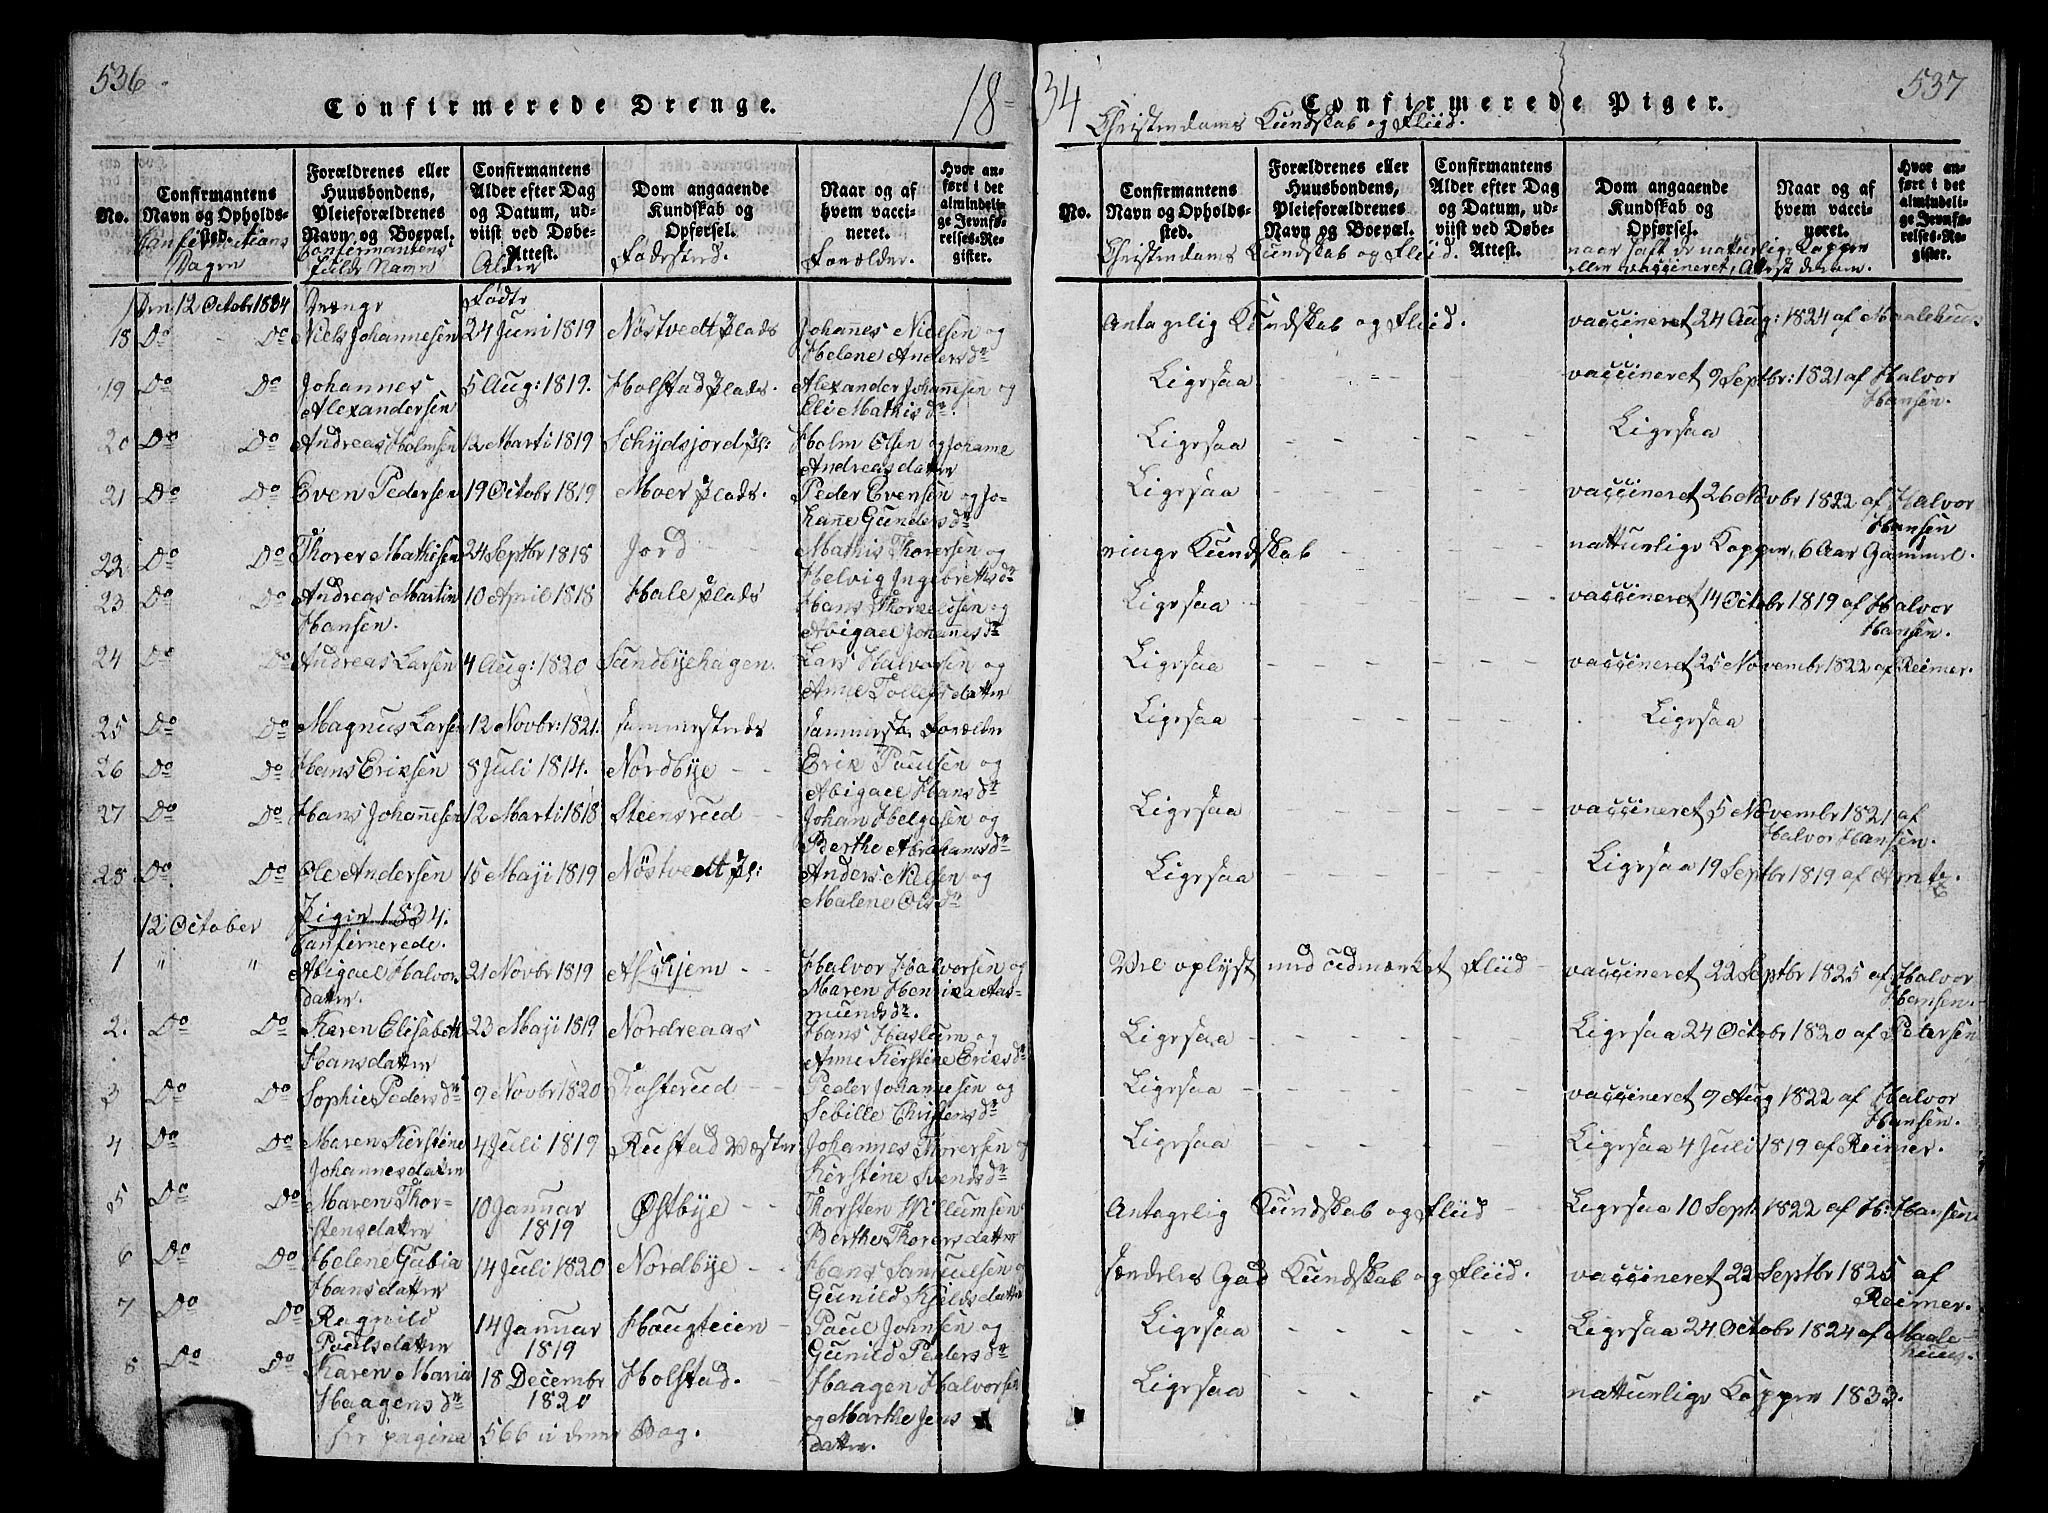 536
Confirmerede Drenge.
18
34
Confirmerede Piger.
537
Christendoms Kundskab og Fliid.
No.
Confirmantens Navn og Opholdssted.
Forældrenes eller Huusbondens, Pleieforældrenes Navn og Boepæl.
Confirmantens Alder efter Dag og Datum, udviist ved Døbe-Attest.
Dom angaaende Kundskab og Opførsel.
Naar og af hvem vaccineret.
Hvor anført i det almindelige Jevnførelses-Register.
No.
Confirmantens Navn og Opholdssted.
Forældrenes eller Huusbondens, Pleieforældrenes Navn og Boepæl.
Confirmantens Alder efter Dag og Datum, udviist ved Døbe-Attest.
Dom angaaende Kundskab og Opførsel.
Naar og af hvem vaccineret.
Hvor anført i det almindelige Jevnførelses-Register.
Confirmations Dagen
Confirmantens fulde Navn
Alder
Fødested.
Forælder.
Christendoms Kundskab og Fliid.
naar haft de natturlige Kopper eller vaccineret, Attest derom.
Den 12 Octobr 1834 Drenge Fødte
18 Do Do Niels Johannesen 24 Juni 1819 Nöstvedt Plads Johanes Nielsen og Helene Andersdr Antagelig Kundskab og Fliid. vaccineret 24 Aug: 1824 af Maalehuus
19 Do Do Johannes Alexandersen 5 Aug: 1819. Holstad Plads. Alexander Johannesen og Eli Mathisdr. Ligesaa vaccineret 9 Septbr: 1821 af Halvor Hansen.
20 Do Do Andreas Holmsen 12 Marti 1819 Schydsjord Pl: Holm Olsen og Johanne Andreasdatter Ligesaa Ligesaa
21 Do Do Even Pedersen 19 Octobr 1819 Moer Plads. Peder Evensen og Johanne Gundersdr Ligesaa vaccineret 26 Novbr 1822 af Halvor Hansen
22 Do Do Thorer Mathisen 24 Septbr 1818 Jord Mathis Thorersen og Helvig Ingebretsdr ringe Kundskab natturlige Kopper, 6 Aar Gammel.
23 Do Do Andreas Martin Hansen. 10 April 1818 Hale Plads Hans Thorkeldsen og Abigael Johannesdr Ligesaa vaccineret 14 Octobr 1819 af Halvor Hansen.
24 Do Do Andreas Larsen 4 Aug: 1820 Sundbyehagen. Lars Halvorsen og Anne Tollefsdatter Ligesaa vaccineret 25 Novembr 1822 af Reimer.
25 Do Do Magnus Larsen 12 Novbr: 1821. sammesteds samme Forælder Ligesaa Ligesaa
26 Do Do Hans Eriksen 8 Juli 1814. Nordbye Erik Paulsen og Abigael Hansdr
27 Do Do Hans Johannesen 12 Marti 1818 Steensrud Johan Helgesen og Berthe Abrahamsdr Ligesaa vaccineret 5 Novembr 1821 af Halvor Hansen.
28 Do Do Ole Andersen 16 Maji 1819 Nöstvedt Pl: Anders Nielsen og Malene Olsdr Ligesaa Ligesaa 19 Septbr 1819 af
12 October Piger 1834. Confirmerede.
1 " " Abigael Halvordatter. 21 Novbr 1819 Askjem Halvor Halvorsen og Maren Henrika Aasmundsdr. Vel oplyst med udmærket Fliid vaccineret 22 Septbr 1825 af Halvor Hansen.
2. Do Do Karen Elisabeth Hansdatter 23 Maji 1819 Nordreaas Hans Haslum og Anne Kirstine Eriksdr Ligesaa Ligesaa 24 Octobr 1820 af Petersen
3 Do Do Sophie Pedersdr 9 Novbr 1820 Fosterud Peder Johannesen og Sebille Christensdr Ligesaa vaccineret 9 Aug 1822 af Halvor Hansen.
4 Do Do Maren Kirstine Johannesdatter 4 Juli 1819 Rustad Væster Johannes Thorersen og Kirstine Svendsdr Ligesaa Ligesaa 4 Juli 1819 af Reimer.
5 Do Do Maren Thorstensdatter 10 Januar 1819 Østbye Thorsten Willumsen Berthe Thorersdatter Antagelig Kundskab og Fliid Ligesaa 10 Sept: 1822 af H: Hansen
6 Do Do Helene Gubia Hansdatter 14 Juli 1820 Nordbye Hans Samuelsen og Gunild Kjeldsdatter særdeles God Kundskab og Fliid. vaccineret 22 Septbr 1825 af Reimer.
7 Do Do Ragnild Poulsdatter 14 Januar 1819 Haugteien Paul Johnsen og Gunild Pedersdr Ligesaa Ligesaa 24 Octobr 1824 af Maalehuus.
8 Do Do Karen Maria Haagensdr 18 Decembr 1820 Holstad. Haagen Halvorsen og Marthe Jensdatter. Ligesaa natturlige Kopper 1833.
See pagina 566 i denne Bog.